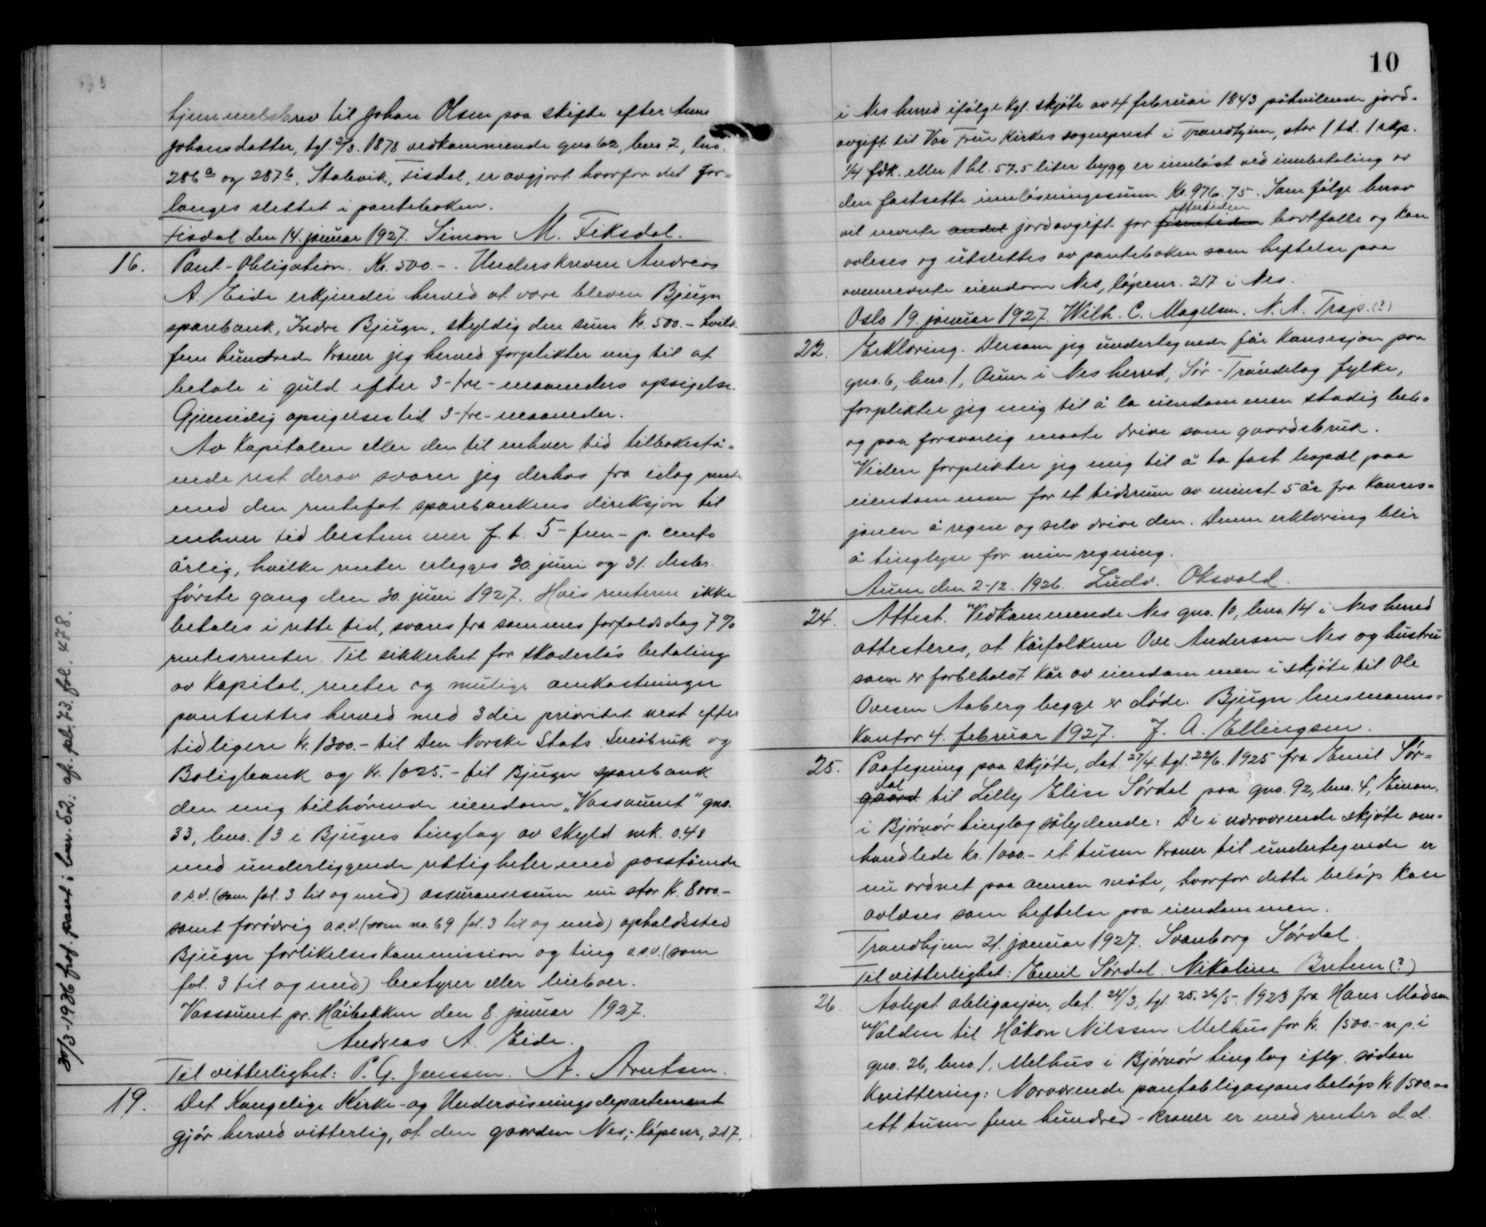 hjemmelsbrev til Johan Olsen paa skifte efter Anne
Johansdatter, tgl. 2/3. 1878 vedkommende gno 62, bno 7, lno.
286a og 287b, Stalvik, Fisdal, er avgjort hvorfor det for=
langes slettet i panteboken.
Fisdal den 14. januar 1927. Simon M. Fiksdal.
16. Pant-Obligation. Kr. 500 -. Underskreven Andreas
A. Eide erkjender herved at være bleven Bjugn
sparebank, Indre Bjugn, skyldig den sum kr. 500.- hvilke
fem hundrede kroner jeg herved forplikter mig til at
betale i guld efter 3-tre-maaneders opsigelse.
Gjensidig opsigelsestid 3-tre-maaneder.
Av kapitalen eller den til enhver tid tilbakestå=
ende rest derav svarer jeg derhos fra idag rente
med den rentefot sparebankens direksjon til
enhver tid bestemmer f. t. 5-fem-p. cento
årlig, hvilke renter erlegges 30. juni og 31. desbr.
første gang den 30. juni 1927. Hvis renterne ikke
betales i rette tid, svares fra sammes forfaldsdag 7%
rentesrenter. Til sikkerhet for skadesløs betaling
av kapital, renter og mulige omkostninger
pantsettes herved med 3die prioritet nest efter
tidligere kr. 1300.- til Den Norske Stats Småbruk og
Boligbank og kr. 1025.- til Bjugn sparebank
den mig tilhørende eiendom "Vassaunet" gno.
33, bno. 13 i Bjugns tinglag av skyld mk. 0.48
med underliggende rettigheter med påstående
o.s.v. (som fol. 3 til og med) assuransesum nu stor kr. 8000.-
samt forøvrig o.s.v. (som no. 69 fol. 3 til og med) opholdssted
Bjugn forlikelseskommission og ting o.s.v. (som
fol. 3 til og med) bestyrer eller leieboer.
Vassaunet pr. Høibakken den 8. januar 1927.
Andreas A. Eide.
Til vitterlighet: P. G. Jenssen. A. Arntsen.
19. Det Kongelige Kirke- og Undervisningsdepartement
gjør herved vitterlig, at den gaarden Nes, løpenr. 217
30/3-1936 frof. pant i bnr. 52: af. pb. 73. fol. 478.
10
i Nes herred ifølge kgl. skjøte av 4 februar 1843 påhvilende jord-
avgift til Vor Frue Kirkes sogneprest i Trondhjem, stor 1 td. 1 skp.
1/4 fdk. eller 1 hl. 57.5 liter bygg er innløst ved innbetaling av
den fastsette innløsningssum kr. 976.75. Som følge herav
vil nevnte andet jordavgift for fremtiden eftertiden bortfalle og kan
avleses og utslettes av panteboken som heftelse paa
ovennevnte eiendom Nes, løpenr. 217 i Nes.
Oslo 19. januar 1927. Wilh. C. Magelsen. N. A. Trap. (?)
22. Erklæring. Dersom jeg undertegnede får konsesjon paa
gno. 6, bno. 1, Aune i Nes herred, Sør-Trøndelag fylke,
forplikter jeg mig til å la eiendommen stadig bebo
og paa forsvarlig maate drive som gaardsbruk.
Videre forplikter jeg mig til å ta fast bopæl paa
eiendommen for et tidsrum av minst 5 år fra konses=
jonen å regne og selv drive den. Denne erklæring blir
å tinglyse for min regning.
Aune den 2-12. 1926. Ludv. Oksvold.
24. Attest. Vedkommende Nes gno. 10, bno. 14 i Nes herred
attesteres, at kårfolkene Ove Andersen Nes og hustru
som er forbeholdt kår av eiendommen i skjøte til Ole
Ovesen Aaberg begge er døde. Bjugn lensmanns=
kontor 4. februar 1927. J. A. Ellingsen.
25. Paategning paa skjøte, dat. 27/4. tgl. 22/6. 1925 fra Emil Sør=
gaard dal til Lilly Elise Sørdal paa gno. 92, bno. 4, Einan,
i Bjørnør tinglag sålydende: De i nærværende skjøte om=
handlede kr. 1000.- et tusen kroner til undertegnede er
nu ordnet paa annen måte, hvorfor dette beløp kan
avlæses som heftelse paa eiendommen.
Trondhjem 21. januar 1927. Svanborg Sørdal.
Til vitterlighet: Emil Sørdal. Nikoline Bretun (?)
26. Avlyst obligasjon, dat. 24/3, tgl. 25. 26/5. 1923 fra Hans Madsen
Valden til Håkon Nilssen Melhus for kr. 1500.- n.p. i
gno. 26, bno. 1, Melhus i Bjørnør tinglag iflg. sådan
Kvittering: Nærværende pantobligasjonsbeløp kr. 1500.00
ett tusen fem hundred-kroner er med renter d.d.